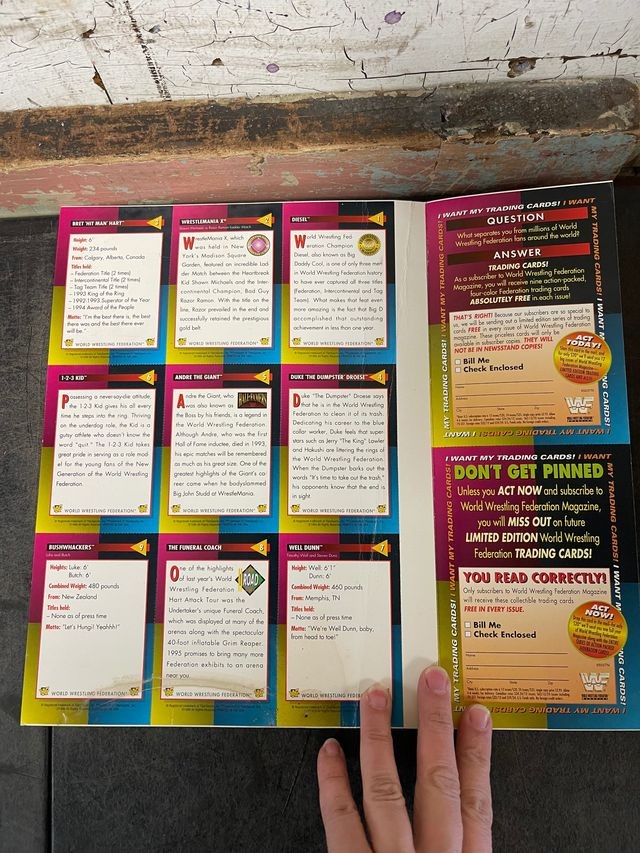 BRET "HIT MAN" HART™
Height: 6'
Weight: 234 pounds
From: Calgary, Alberta, Canada
Titles held:
– Federation Title (2 times)
– Intercontinental Title (2 times)
– Tag Team Title (2 times)
– 1993 King of the Ring
– 1992-1993 Superstar of the Year
– 1994 Award of the People
Motto: "I'm the best there is, the best
there was and the best there ever
will be."
WORLD WRESTLING FEDERATION®
WRESTLEMANIA X™
WrestleMania X, which
was held in New
York's Madison Square
Garden, featured an incredible Lad-
der Match between the Heartbreak
Kid Shawn Michaels and the Inter-
continental Champion, Bad Guy
Razor Ramon. With the title on the
line, Razor prevailed in the end and
successfully retained the prestigious
gold belt.
WORLD WRESTLING FEDERATION®
DIESEL™
World Wrestling Fed-
eration Champion
Diesel, also known as Big
Daddy Cool, is one of only three men
in World Wrestling Federation history
to have ever captured all three titles
(Federation, Intercontinental and Tag
Team). What makes that feat even
more amazing is the fact that Big D
accomplished this outstanding
achievement in less than one year.
WORLD WRESTLING FEDERATION®
1-2-3 KID™
Possessing a never-say-die attitude,
the 1-2-3 Kid gives his all every
time he steps into the ring. Thriving
on the underdog role, the Kid is a
gutsy athlete who doesn't know the
word "quit." The 1-2-3 Kid takes
great pride in serving as a role mod-
el for the young fans of the New
Generation of the World Wrestling
Federation.
WORLD WRESTLING FEDERATION®
ANDRE THE GIANT™
Andre the Giant, who
was also known as
the Boss by his friends, is a legend in
the World Wrestling Federation.
Although Andre, who was the first
Hall of Fame inductee, died in 1993,
his epic matches will be remembered
as much as his great size. One of the
greatest highlights of the Giant's ca-
reer came when he bodyslammed
Big John Studd at WrestleMania.
WORLD WRESTLING FEDERATION®
DUKE "THE DUMPSTER" DROESE™
Duke "The Dumpster" Droese says
that he is in the World Wrestling
Federation to clean it of its trash.
Dedicating his career to the blue
collar worker, Duke feels that super-
stars such as Jerry "The King" Lawler
and Hakushi are littering the rings of
the World Wrestling Federation.
When the Dumpster barks out the
words "It's time to take out the trash,"
his opponents know that the end is
in sight.
WORLD WRESTLING FEDERATION®
BUSHWHACKERS™
Luke and Butch
Heights: Luke: 6'
Butch: 6'
Combined Weight: 480 pounds
From: New Zealand
Titles held:
– None as of press time
Motto: "Let's Hungi! Yeahhh!"
WORLD WRESTLING FEDERATION®
THE FUNERAL COACH
One of the highlights
of last year's World
Wrestling Federation
Hart Attack Tour was the
Undertaker's unique Funeral Coach,
which was displayed at many of the
arenas along with the spectacular
40-foot inflatable Grim Reaper.
1995 promises to bring many more
Federation exhibits to an arena
near you.
ROAD
WORLD WRESTLING FEDERATION®
WELL DUNN™
Timothy Well and Steven Dunn
Heights: Well: 6'1"
Dunn: 6'
Combined Weight: 460 pounds
From: Memphis, TN
Titles held:
– None as of press time
Motto: "We're Well Dunn, baby,
from head to toe!"
WORLD WRESTLING FEDERATION®
I WANT MY TRADING CARDS! I WANT
MY TRADING CARDS! I WANT MY TRADING CARDS!
QUESTION
What separates you from millions of World
Wrestling Federation fans around the world?
ANSWER
TRADING CARDS!
As a subscriber to World Wrestling Federation
Magazine, you will receive nine action-packed,
four-color Federation trading cards
ABSOLUTELY FREE in each issue!
THAT'S RIGHT! Because our subscribers are so special to
us, we will be sending out a limited edition series of trading
cards FREE in every issue of World Wrestling Federation
Magazine. These priceless cards will only be
available in subscriber copies. THEY WILL
NOT BE IN NEWSSTAND COPIES!
Bill Me
Check Enclosed
ACT
TODAY!
I WANT MY TRADING CARDS! I WANT MY
DON'T GET PINNED
Unless you ACT NOW and subscribe to
World Wrestling Federation Magazine,
you will MISS OUT on future
LIMITED EDITION World Wrestling
Federation TRADING CARDS!
YOU READ CORRECTLY!
Only subscribers to World Wrestling Federation Magazine
will receive these collectible trading cards
FREE IN EVERY ISSUE.
Bill Me
Check Enclosed
ACT
NOW!
Name
Address
City
State
Zip
I WANT MY TRADING CARDS! I WANT MY